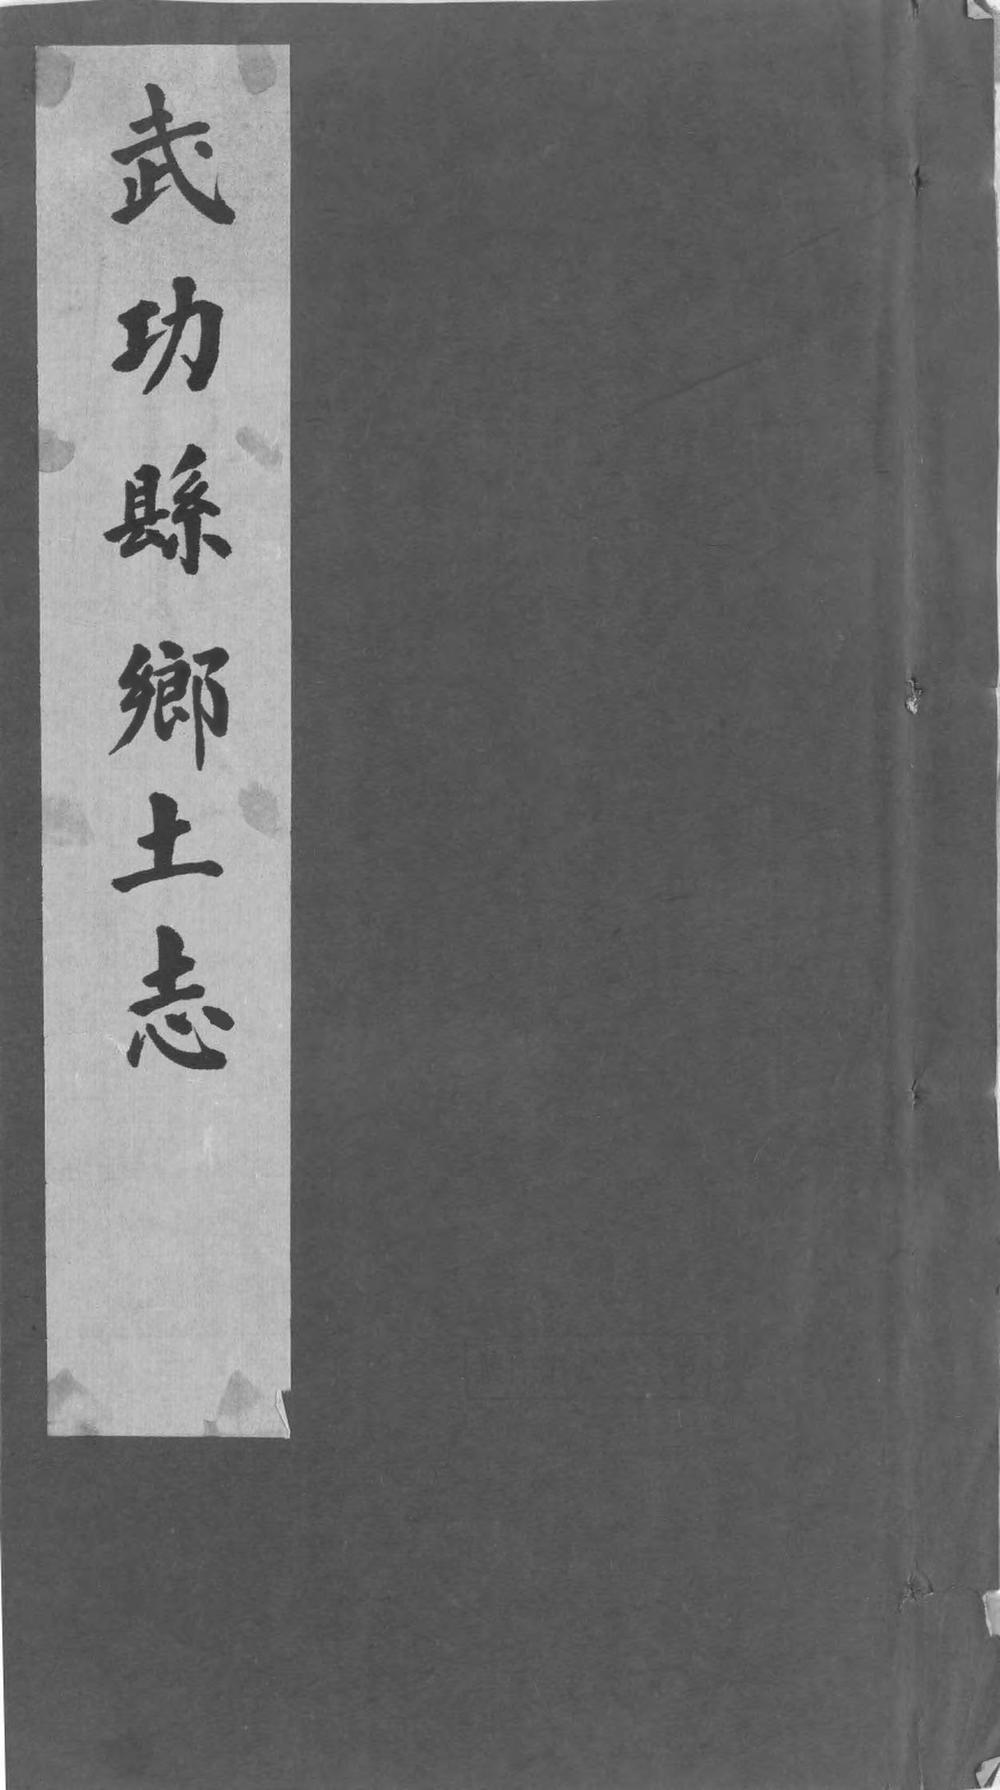 武功縣鄉土志